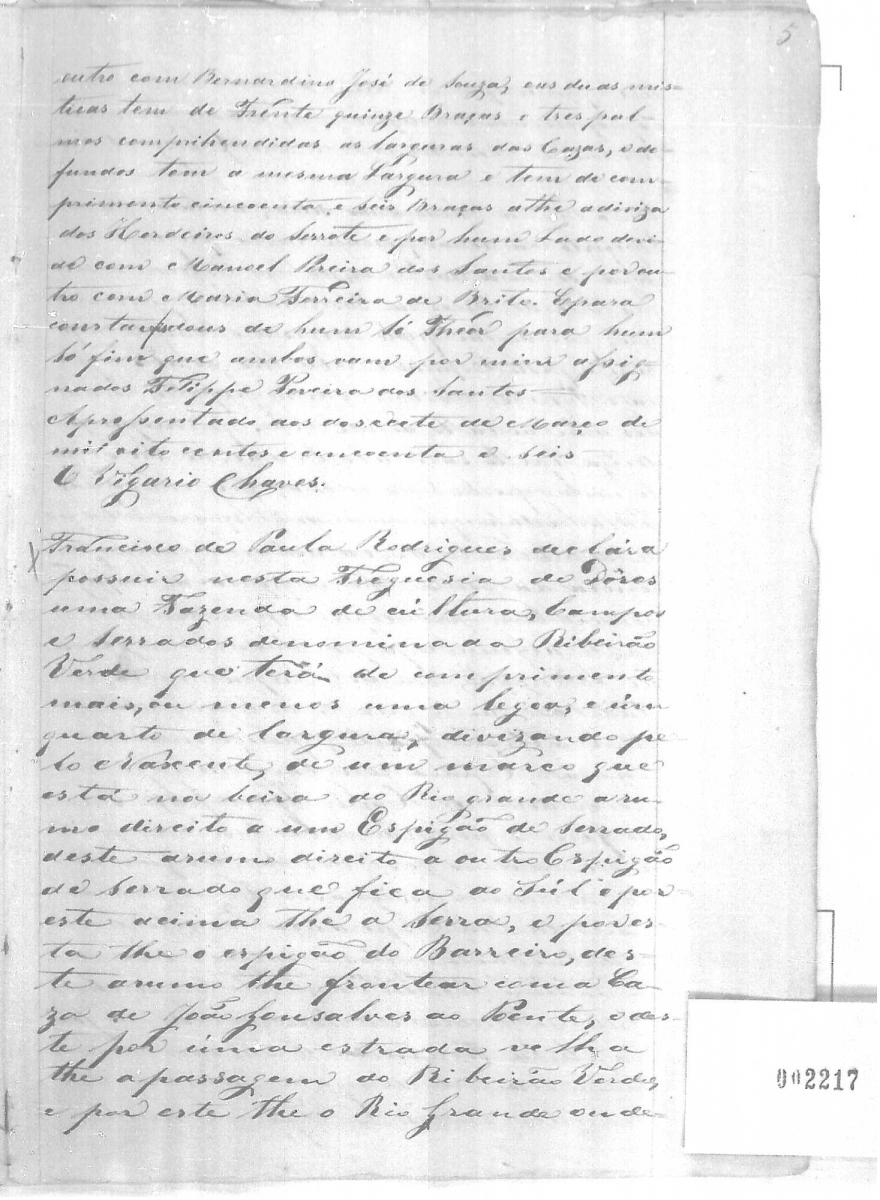 5
outro com Bernardino José de Souza, eas duas mis-
ticas tem de Frente quinze Braças e tres pal-
mos comprihendidas as larguras das Cazas, e de
fundos tem a mesma Largura e tem de com-
primento cincoenta e seis Braças athe adiviza
dos Herdeiros do Serrote e por hum Lado devi-
de com Manoel Pereira dos Santos e por ou-
tro com Maria Ferreira de Brito. Epara
constar dous de hum só Theór para hum
só fim que ambos vam por mim assig-
nados Filippe Pereira dos Santos
Apresentado aos desesete de Março de
mil oito centos e cincoenta e seis
O Vigario Chaves.
Francisco de Paula Rodrigues declára
possuir nesta Freguesia de Dôres
uma Fazenda de cultura, Campos
e Serrados denominada Ribeirão
Verde que terá de comprimento
mais, ou menos uma legoa, e úm
quarto de largura, divizando pe-
lo Nascente, de um marco que
está na beira do Rio grande aru-
mo direito a um Espigão de Serrado,
deste arumo direito a outro Espigão
de Serrado que fica ao Súl e por
este acima the a Serra, e por es-
ta the o espigão do Barreiro, des-
te arumo the frontear coma Ca-
za de João Gonsalves ao Poente, e des-
te por úma estrada velha
the a passagem do Ribeirão Verde,
e por este the o Rio Grande onde
002217